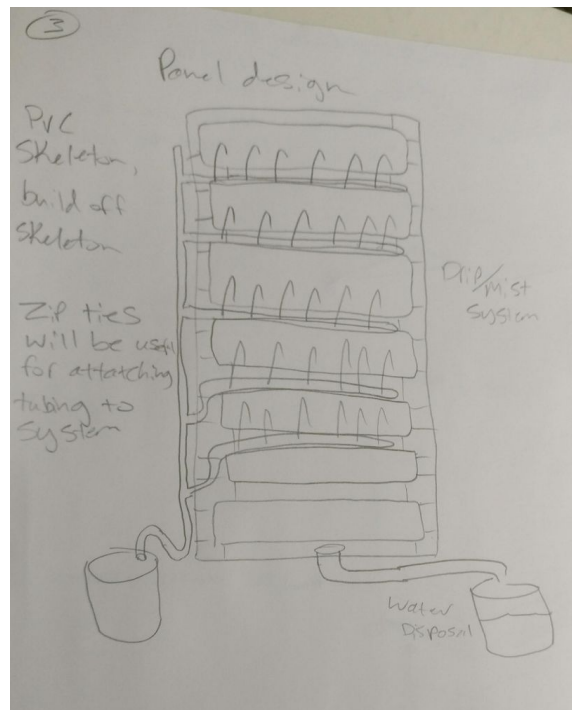 3
Panel design
PVC
Skeleton,
build off
Skeleton
Zip ties
will be useful
for attatching
tubing to
System
Drip/mist
System
Water
Disposal